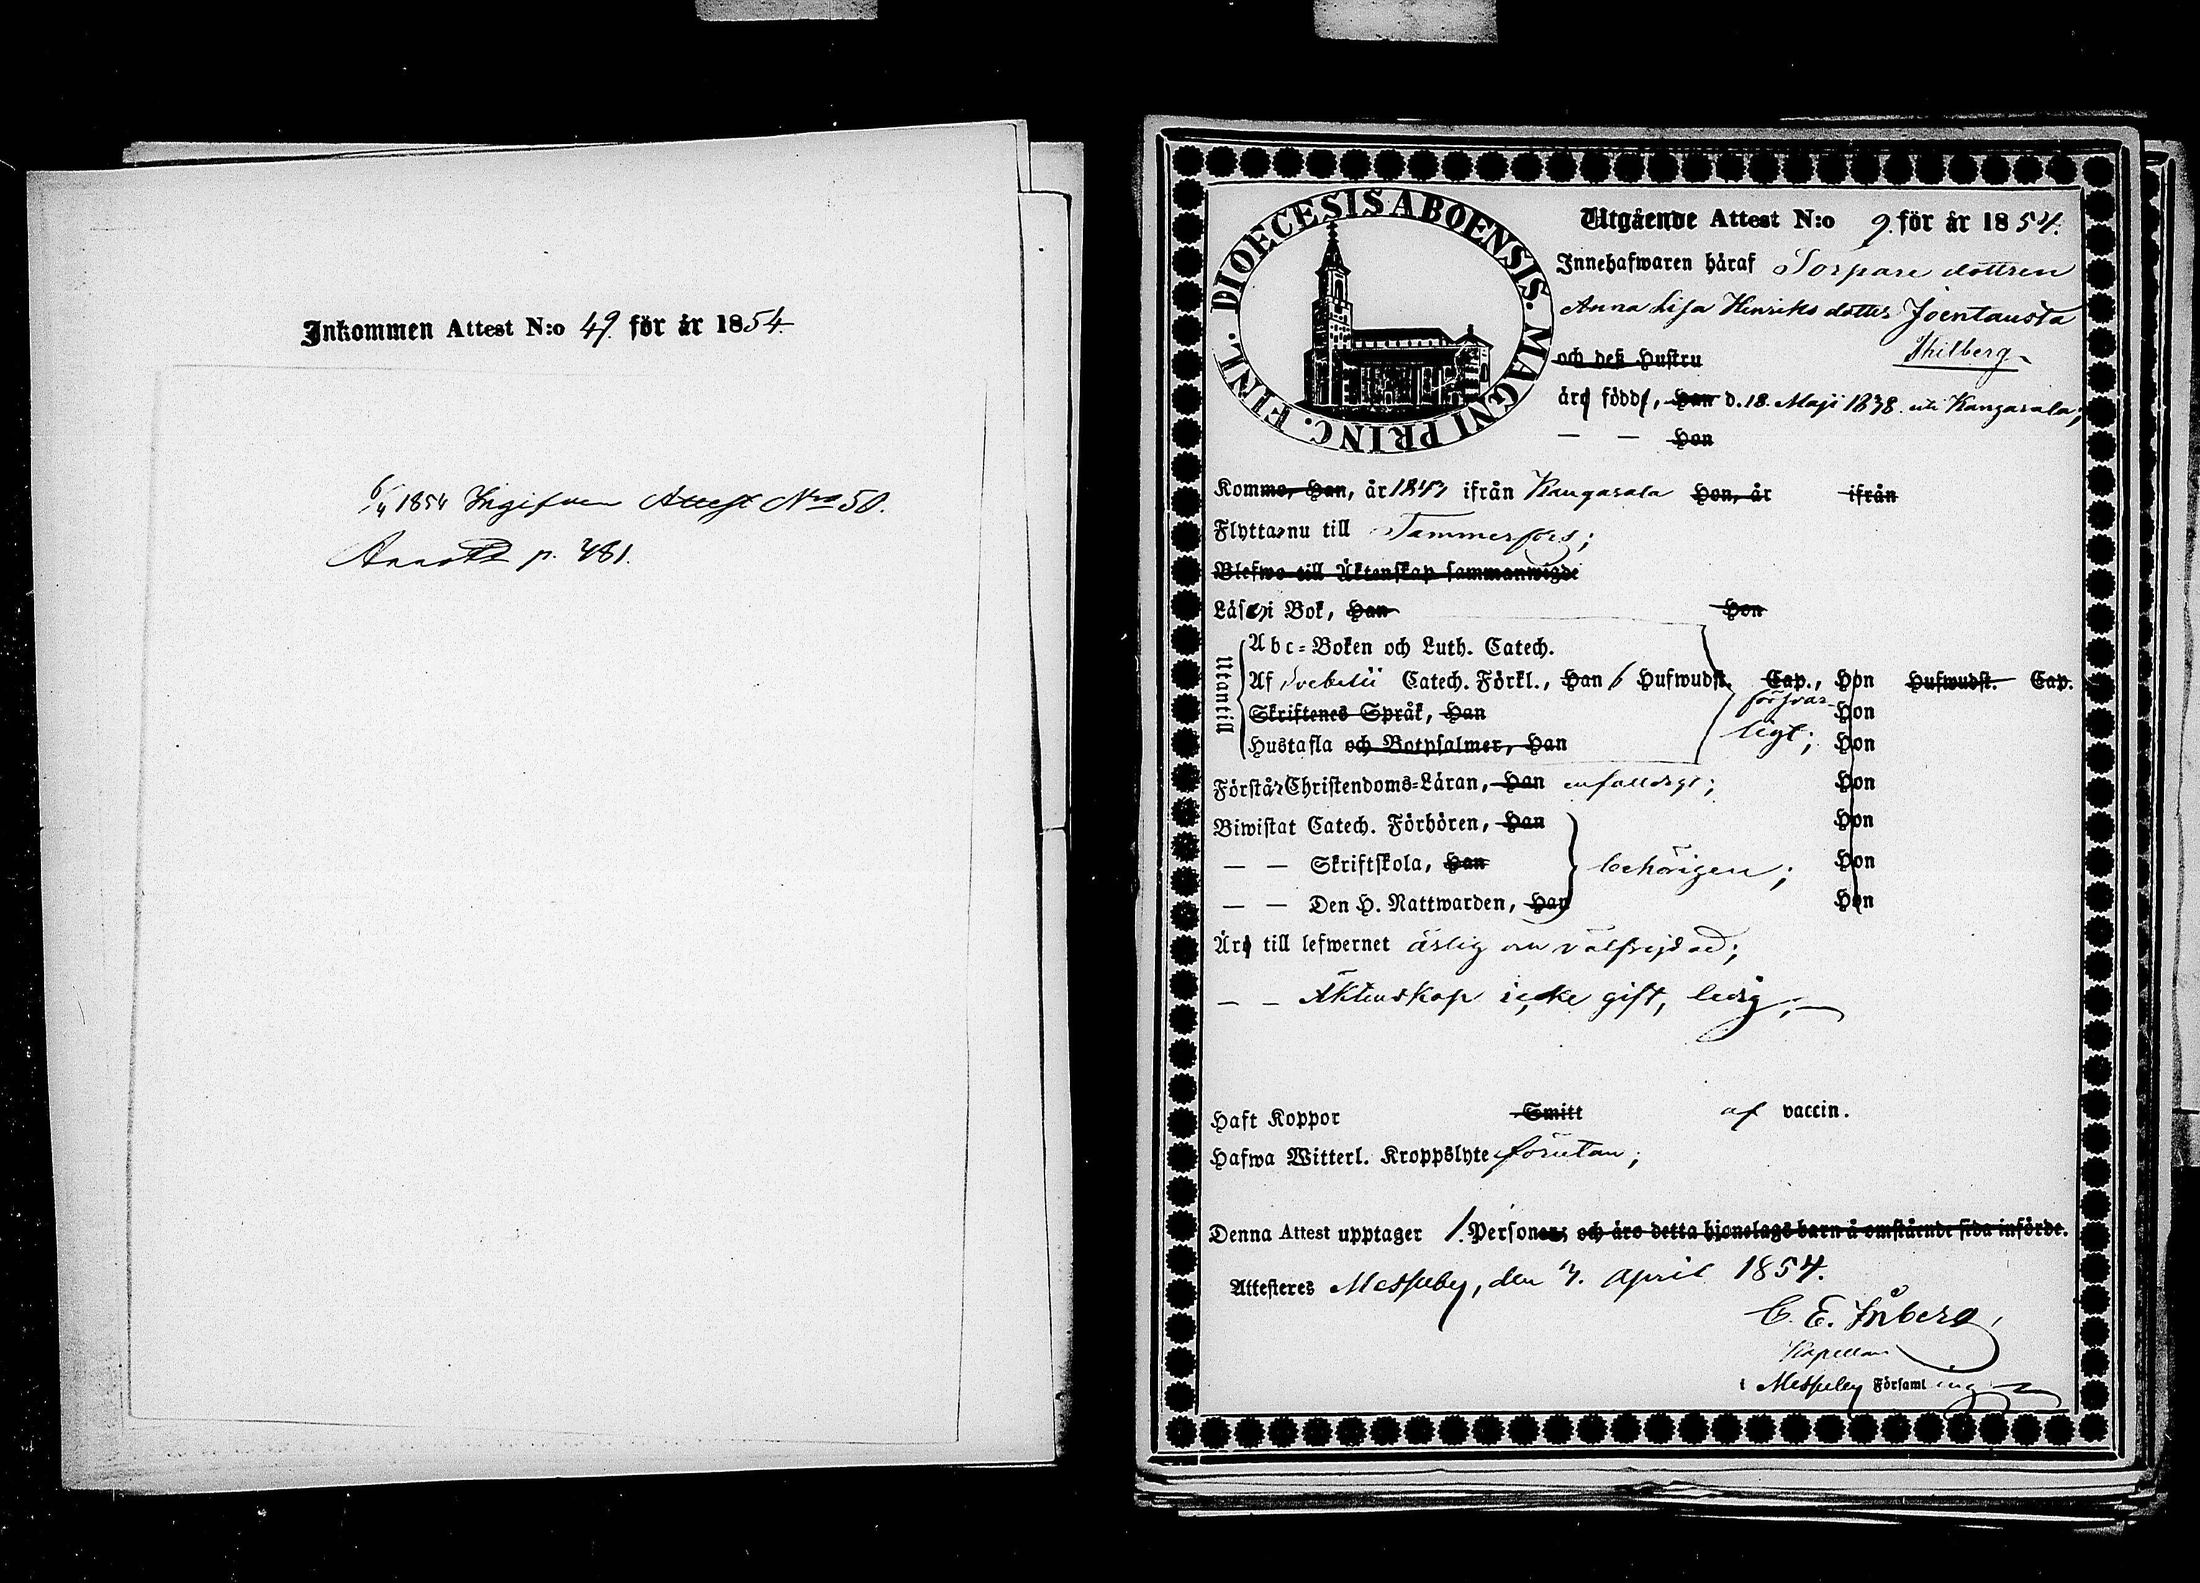 Inkommen Attest N:o 49. för år 1854
6/4 1854 Ingifven Attest No 50.
p. 481.
DIOECESIS ABOENSIS. MAGNI PRINC. FINL.
Utgående Attest N:o 9. för år 1854.
Innehafwaren häraf Torpare dottren
Anna Lisa Henriks dotter Joentausta
och deß Hustru Thilberg
äro född, Han d. 18. Maji 1838. uti Kangasala;
— — Hon
Komme, Han, år 1847 ifrån Kangasala Hon, år ifrån
Flyttar nu till Tammerfors;
Blefwo till Äktenskap sammanwigde
Läser i Bok, Han Hon
Utantill
Abc-Boken och Luth. Catech.
Af Svebelii Catech. Förkl., Han 6 Hufwudst. Cap., Hon Hufwudst. Cap.
Skriftenes Språk, Han försvar- Hon
Hustafla och Botpsalmer, Han ligt; Hon
Förstår Christendoms-Läran, Han enfalldigt; Hon
Biwistat Catech. Förhören, Han Hon
— — Skriftskola, Han behörigen; Hon
— — Den H. Nattwarden, Han Hon
Äro till lefwernet ärlig och välfrejdad;
— — Äktenskap icke gift, ledig;
Haft Koppor Smitt af vaccin.
Hafwa Witterl. Kroppslyte förutan;
Denna Attest upptager 1. Personer; och äro detta hjonelags barn å omstående sida införde.
Attesteres Messuby, den 3. April 1854.
C. E. Inberg,
Kapellan
i Messuby Församling